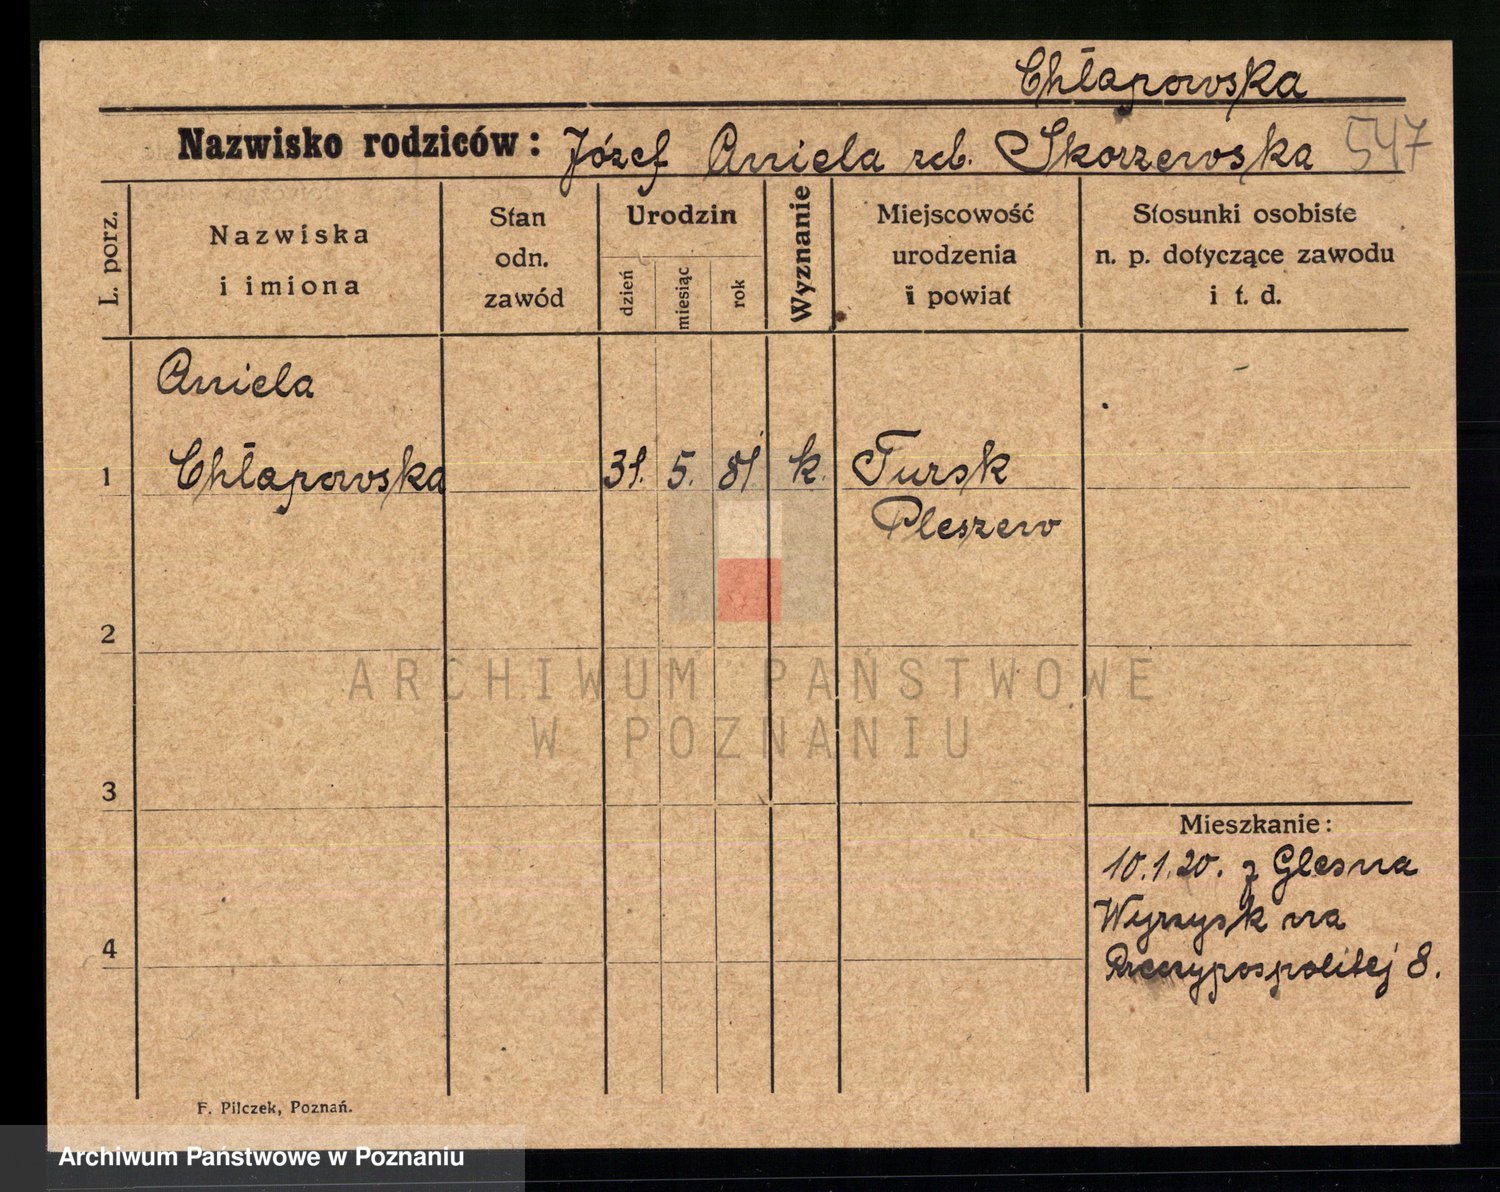 Chłapowska
Nazwisko rodziców: Józef Aniela zcb. Skorzewska 547
L. porz.
Nazwiska
i imiona
Stan
odn.
zawód
Urodzin
dzień
miesiąc
rok
Wyznanie
Miejscowość
urodzenia
i powiat
Stosunki osobiste
n. p. dotyczące zawodu
i t. d.
Aniela
1 Chłapowska 31. 5. 81 k. Tursk
Pleszew
2
3
4
Mieszkanie:
10.1.20. z Glesna
Wyrzysk na
Rzeczypospolitej 8.
F. Pilczek, Poznań.
ARCHIWUM PAŃSTWOWE
W POZNANIU
Archiwum Państwowe w Poznaniu